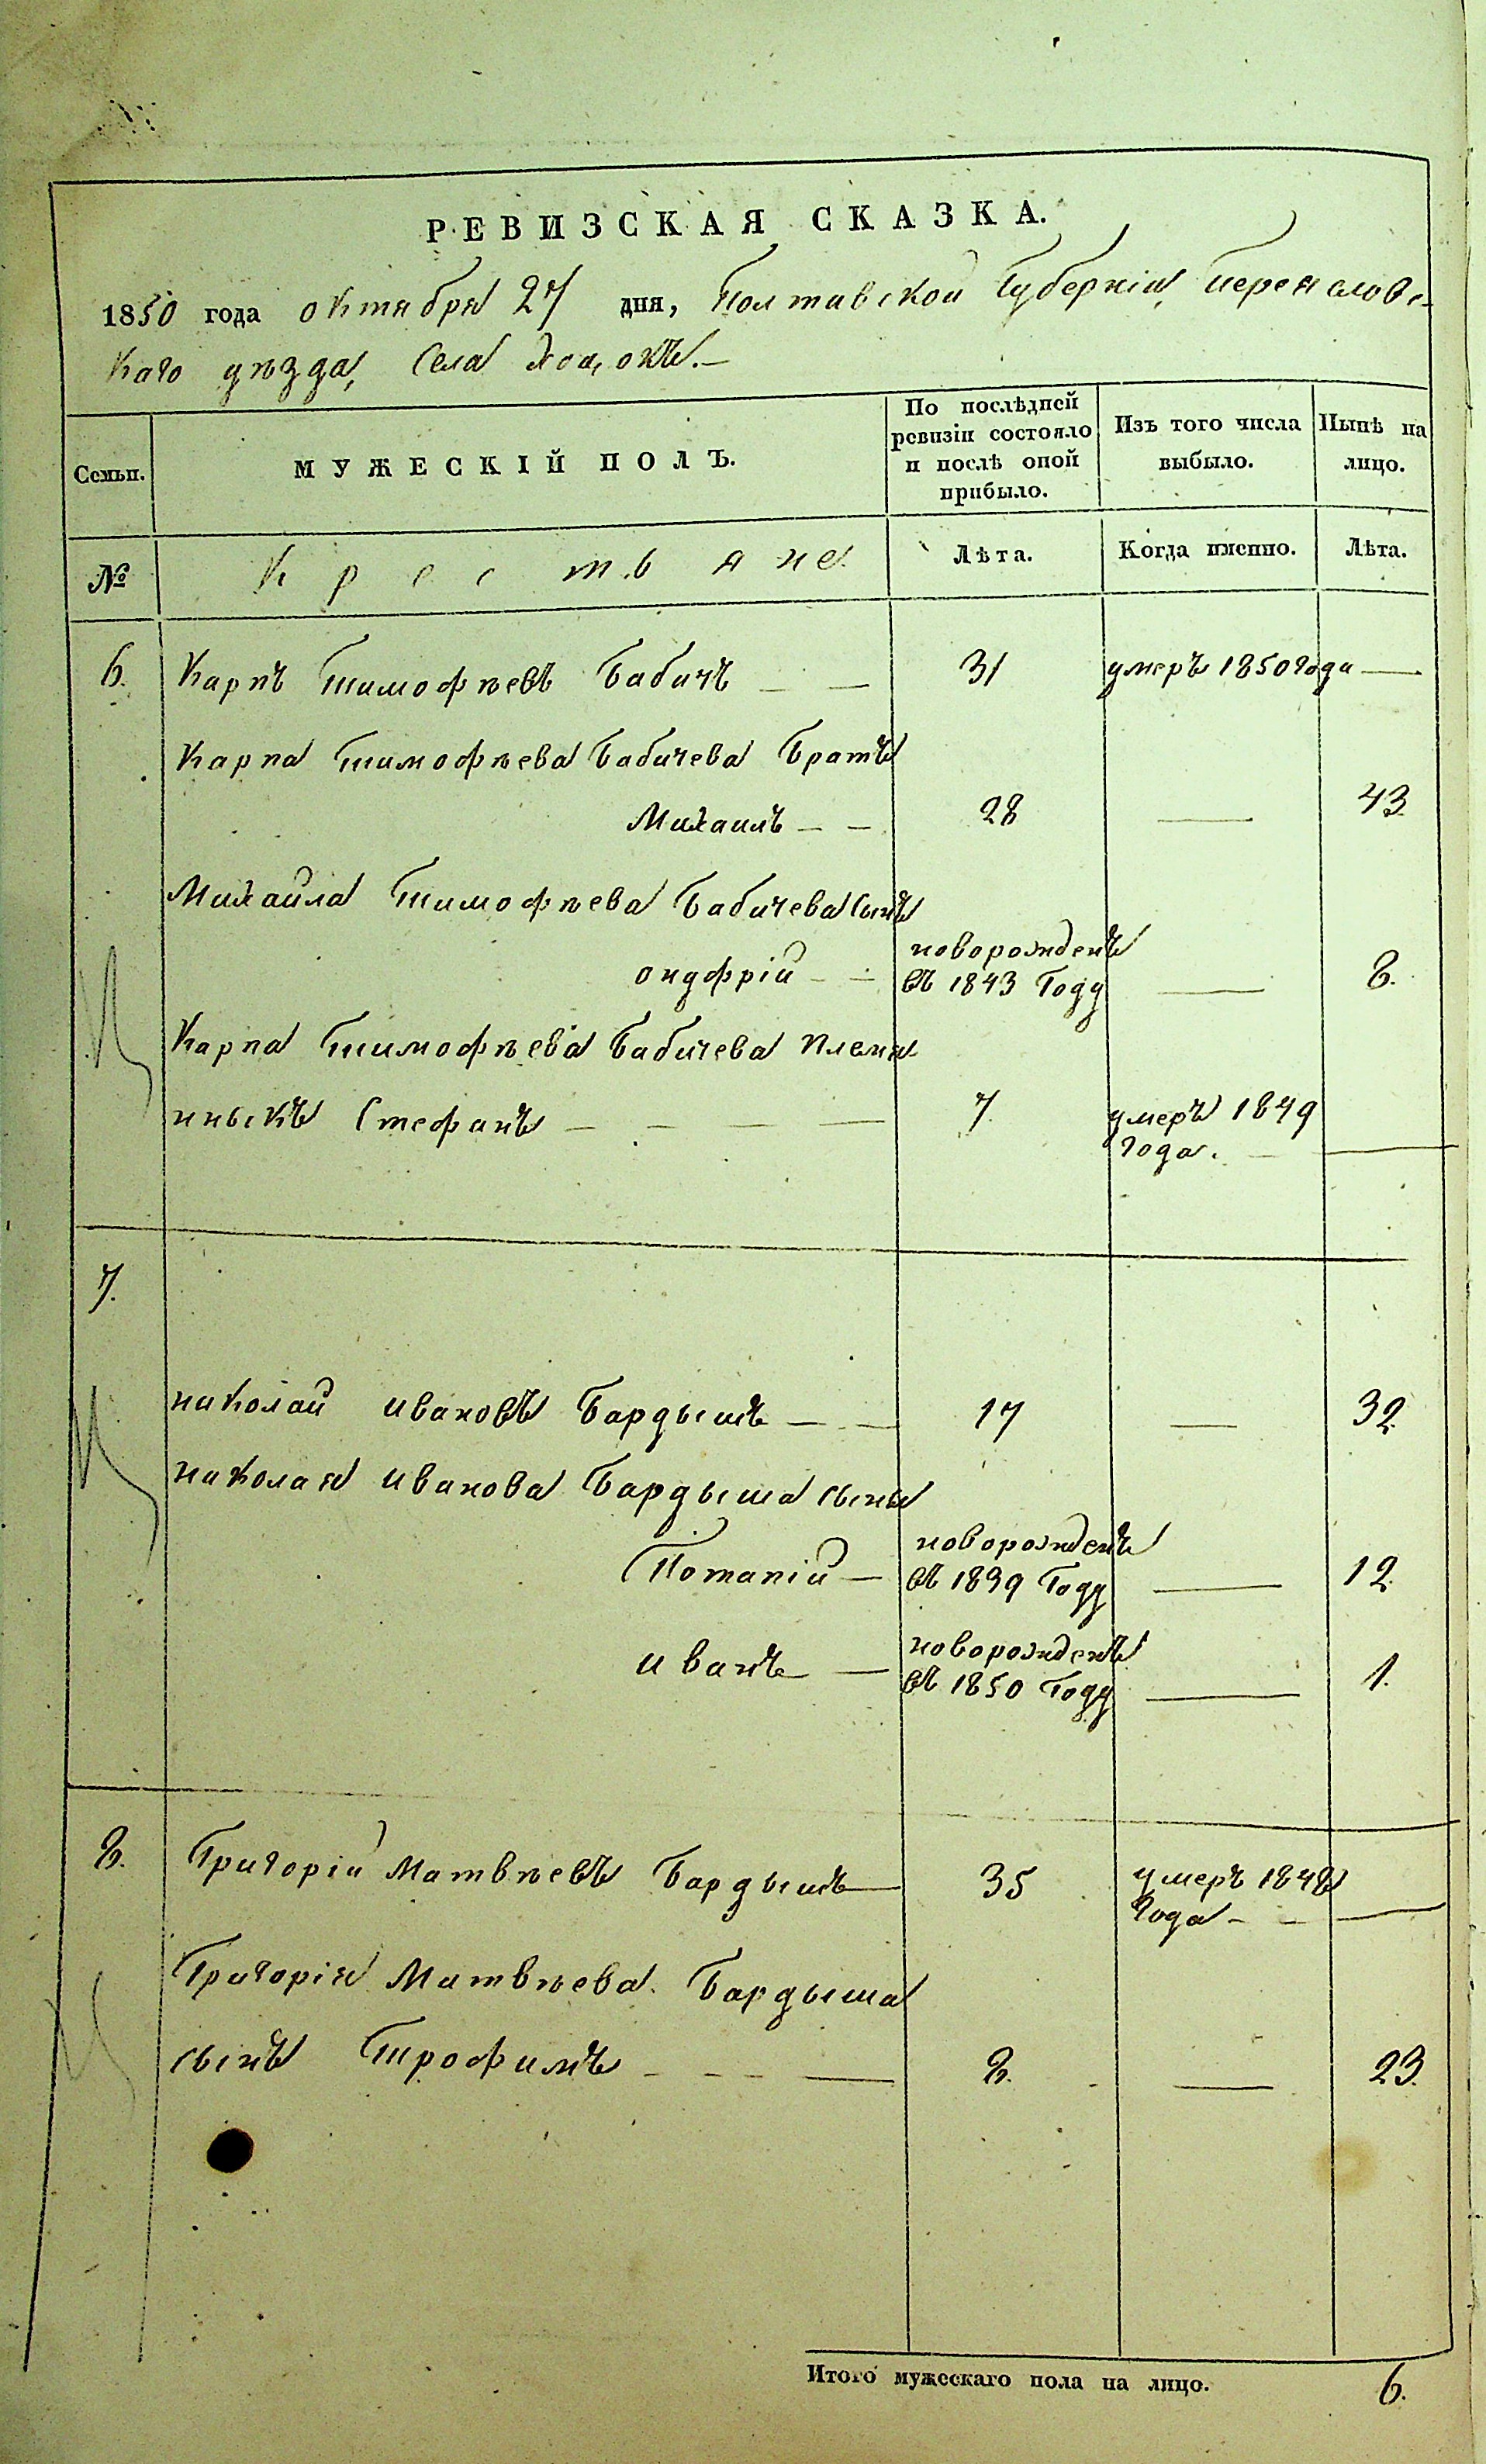 РЕВИЗСКАЯ СКАЗКА.
1850 года октября 27 дня, Полтавской Губерніи, Переяловс-
каго уѣзда, Села Хоцокъ.—
Семьи. МУЖЕСКІЙ ПОЛЪ. По послѣдней ревизіи состояло и послѣ оной прибыло. Изъ того числа выбыло. Нынѣ на лицо.
№ Крестьяне. Лѣта. Когда именно. Лѣта.
6. Карпъ Тимофѣевъ Бабичъ — — 31 умеръ 1850 года —
Карпа Тимофѣева Бабичева Братъ
Михаилъ — — 28 — 43.
Михайла Тимофѣева Бабичева Сынъ
новорожденъ
онуфрій — — въ 1843 Году — 8.
Карпа Тимофѣева Бабичева Племя-
нныкъ Стефанъ — — — — 7. умеръ 1849
года. — —
7.
николай ивановъ Бардышъ — — 17 — 32.
николая иванова Бардыша сыны
новорожденъ
Потапій — въ 1839 Году — 12.
новорожденъ
иванъ — въ 1850 Году — 1.
8. Григорій Матвѣевъ Бардышъ — 35 умеръ 1848
года — — —
Григорія Матвѣева Бардыша
сынъ Трофимъ — — — — 8. — 23.
Итого мужескаго пола на лицо. 6.